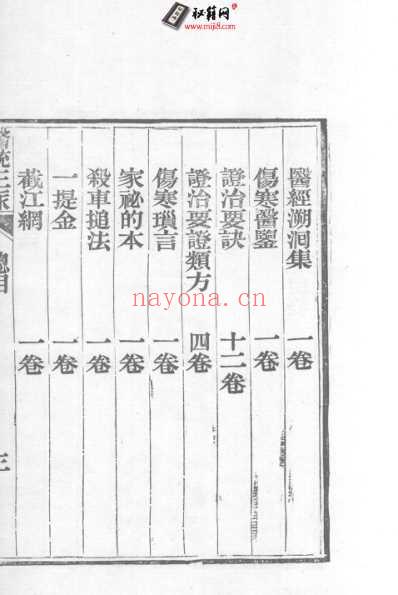 秘籍网
www.miji8.com
醫經溯洄集 一卷
傷寒醫鑒 一卷
證治要訣 十二卷
證治要證類方 四卷
傷寒瑣言 一卷
家祕的本 一卷
殺車搥法 一卷
一提金 一卷
截江網 一卷
總目 三
nayona.cn